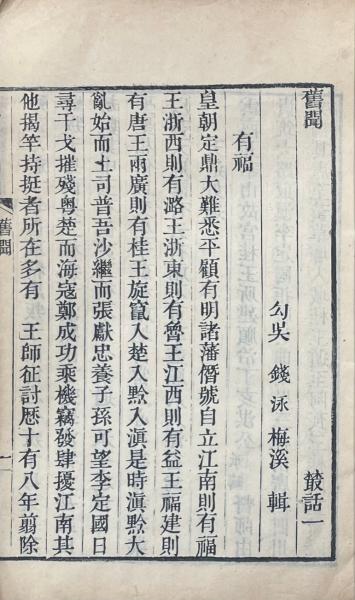 舊聞 叢話一
勾吳 錢泳 梅溪 輯
有福
皇朝定鼎大難悉平顧有明諸藩僭號自立江南則有福
王浙西則有潞王浙東則有魯王江西則有益王福建則
有唐王兩廣則有桂王旋竄入楚入黔入滇是時滇黔大
亂始而土司普吾沙繼而張獻忠養子孫可望李定國日
尋干戈摧殘粤楚而海寇鄭成功乘機竊發肆擾江南其
他揭竿持挺者所在多有 王師征討歷十有八年剪除
舊聞 一